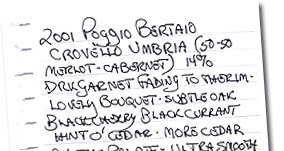 2001 POGGIO BERTAIO
CROVELLO UMBRIA (50-50
MERLOT-CABERNET) 14%
DRK GARNET FADING TO THE RIM.
LOVELY BOUQUET - SUBTLE OAK
BLACK CHERRY BLACK CURRANT
HINT O' CEDAR - MORE CEDAR
PALATE - ULTRA SMOOTH